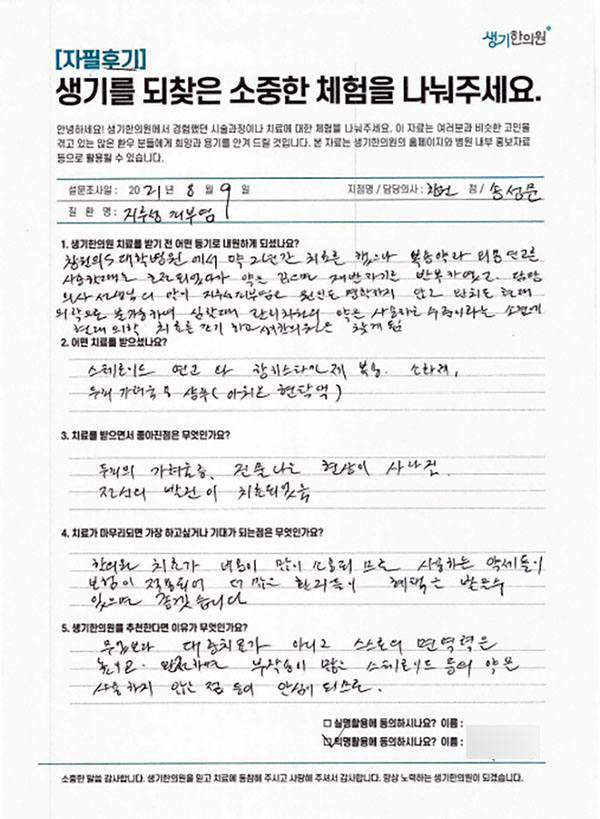 생기한의원
[자필후기]
생기를 되찾은 소중한 체험을 나눠주세요.
안녕하세요! 생기한의원에서 경험했던 시술과정이나 치료에 대한 체험을 나눠주세요. 이 자료는 여러분과 비슷한 고민을
겪고 있는 많은 환우 분들에게 희망과 용기를 안겨 드릴 것입니다. 본 자료는 생기한의원의 홈페이지와 병원 내부 홍보자료
등으로 활용될 수 있습니다.
설문조사일 : 2021년 8월 9일 지점명 / 담당의사 : 창원 점 / 송성문
질 환 명 : 지루성 피부염
1. 생기한의원 치료를 받기 전 어떤 동기로 내원하게 되셨나요?
창원의 S대학병원에서 약 2년간 치료를 했으나 복용약과 외용연고를
사용할때는 호전되었다가 약을 끊으면 재발하기를 반복하였고. 담당
의사 선생님의 말이 지루성피부염은 원인도 명확하지 않고 완치도 현대
의학으로 불가능하며 심할때 관리차원의 약을 사용하는 수준이라는 소견에
현대의학 치료를 포기하고 생기한의원을 찾게됨
2. 어떤 치료를 받으셨나요?
스테로이드 연고와 항히스타민제 복용. 소화제,
두피 가려움용 샴푸( 현탁액)
3. 치료를 받으면서 좋아진점은 무엇인가요?
두피의 가려움증, 진물나는 현상이 사라짐.
전신의 발진이 치료되었음
4. 치료가 마무리되면 가장 하고싶거나 기대가 되는점은 무엇인가요?
한의원 치료가 비용이 많이 소용되므로 사용하는 약제들이
보험이 적용되어 더 많은 환자들이 혜택을 받을수
있으면 좋겠습니다
5. 생기한의원을 추천한다면 이유가 무엇인가요?
무엇보다 대증치료가 아니고 스스로의 면역력을
높이고. 부작용이 많은 스테로이드 등의 약물
사용하지 않는 점 등이 안심이 되므로.
실명활용에 동의하시나요? 이름 :
익명활용에 동의하시나요? 이름 :
소중한 말씀 감사합니다. 생기한의원을 믿고 치료에 동참해 주시고 사랑해 주셔서 감사합니다. 항상 노력하는 생기한의원이 되겠습니다.